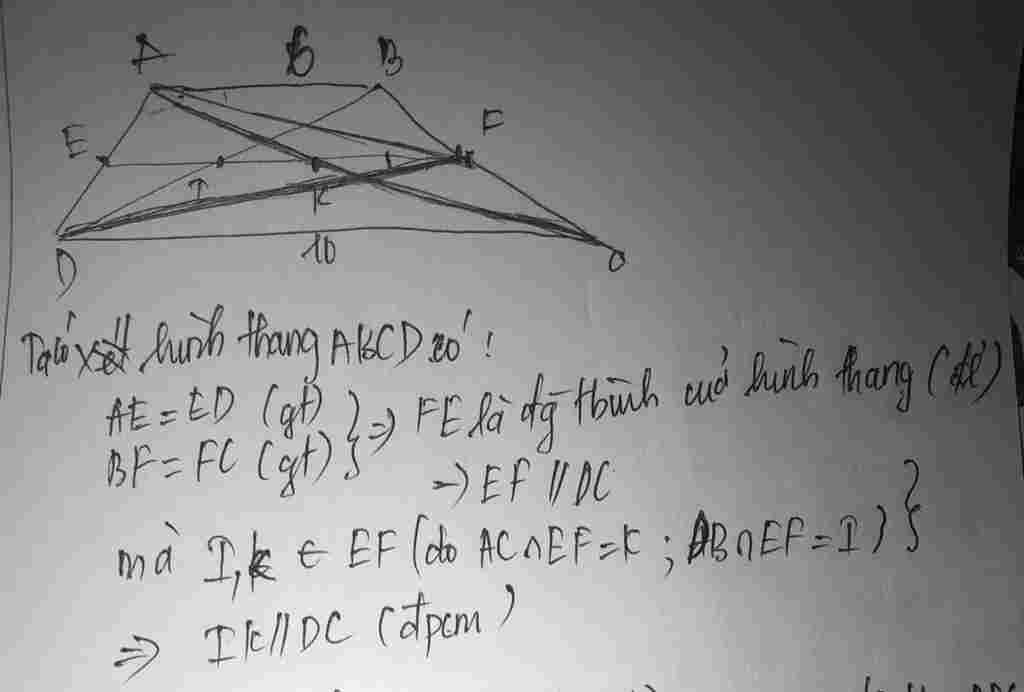 A 6 B
E F
I K
D 10 C
Ta có xét hình thang ABCD có:
AE = ED (gt)
BF = FC (gt) } => FE là đg tbình của hình thang (đl)
-> EF // DC
mà I, K ∈ EF (do AC ∩ EF = K ; DB ∩ EF = I) }
=> IK // DC (đpcm)